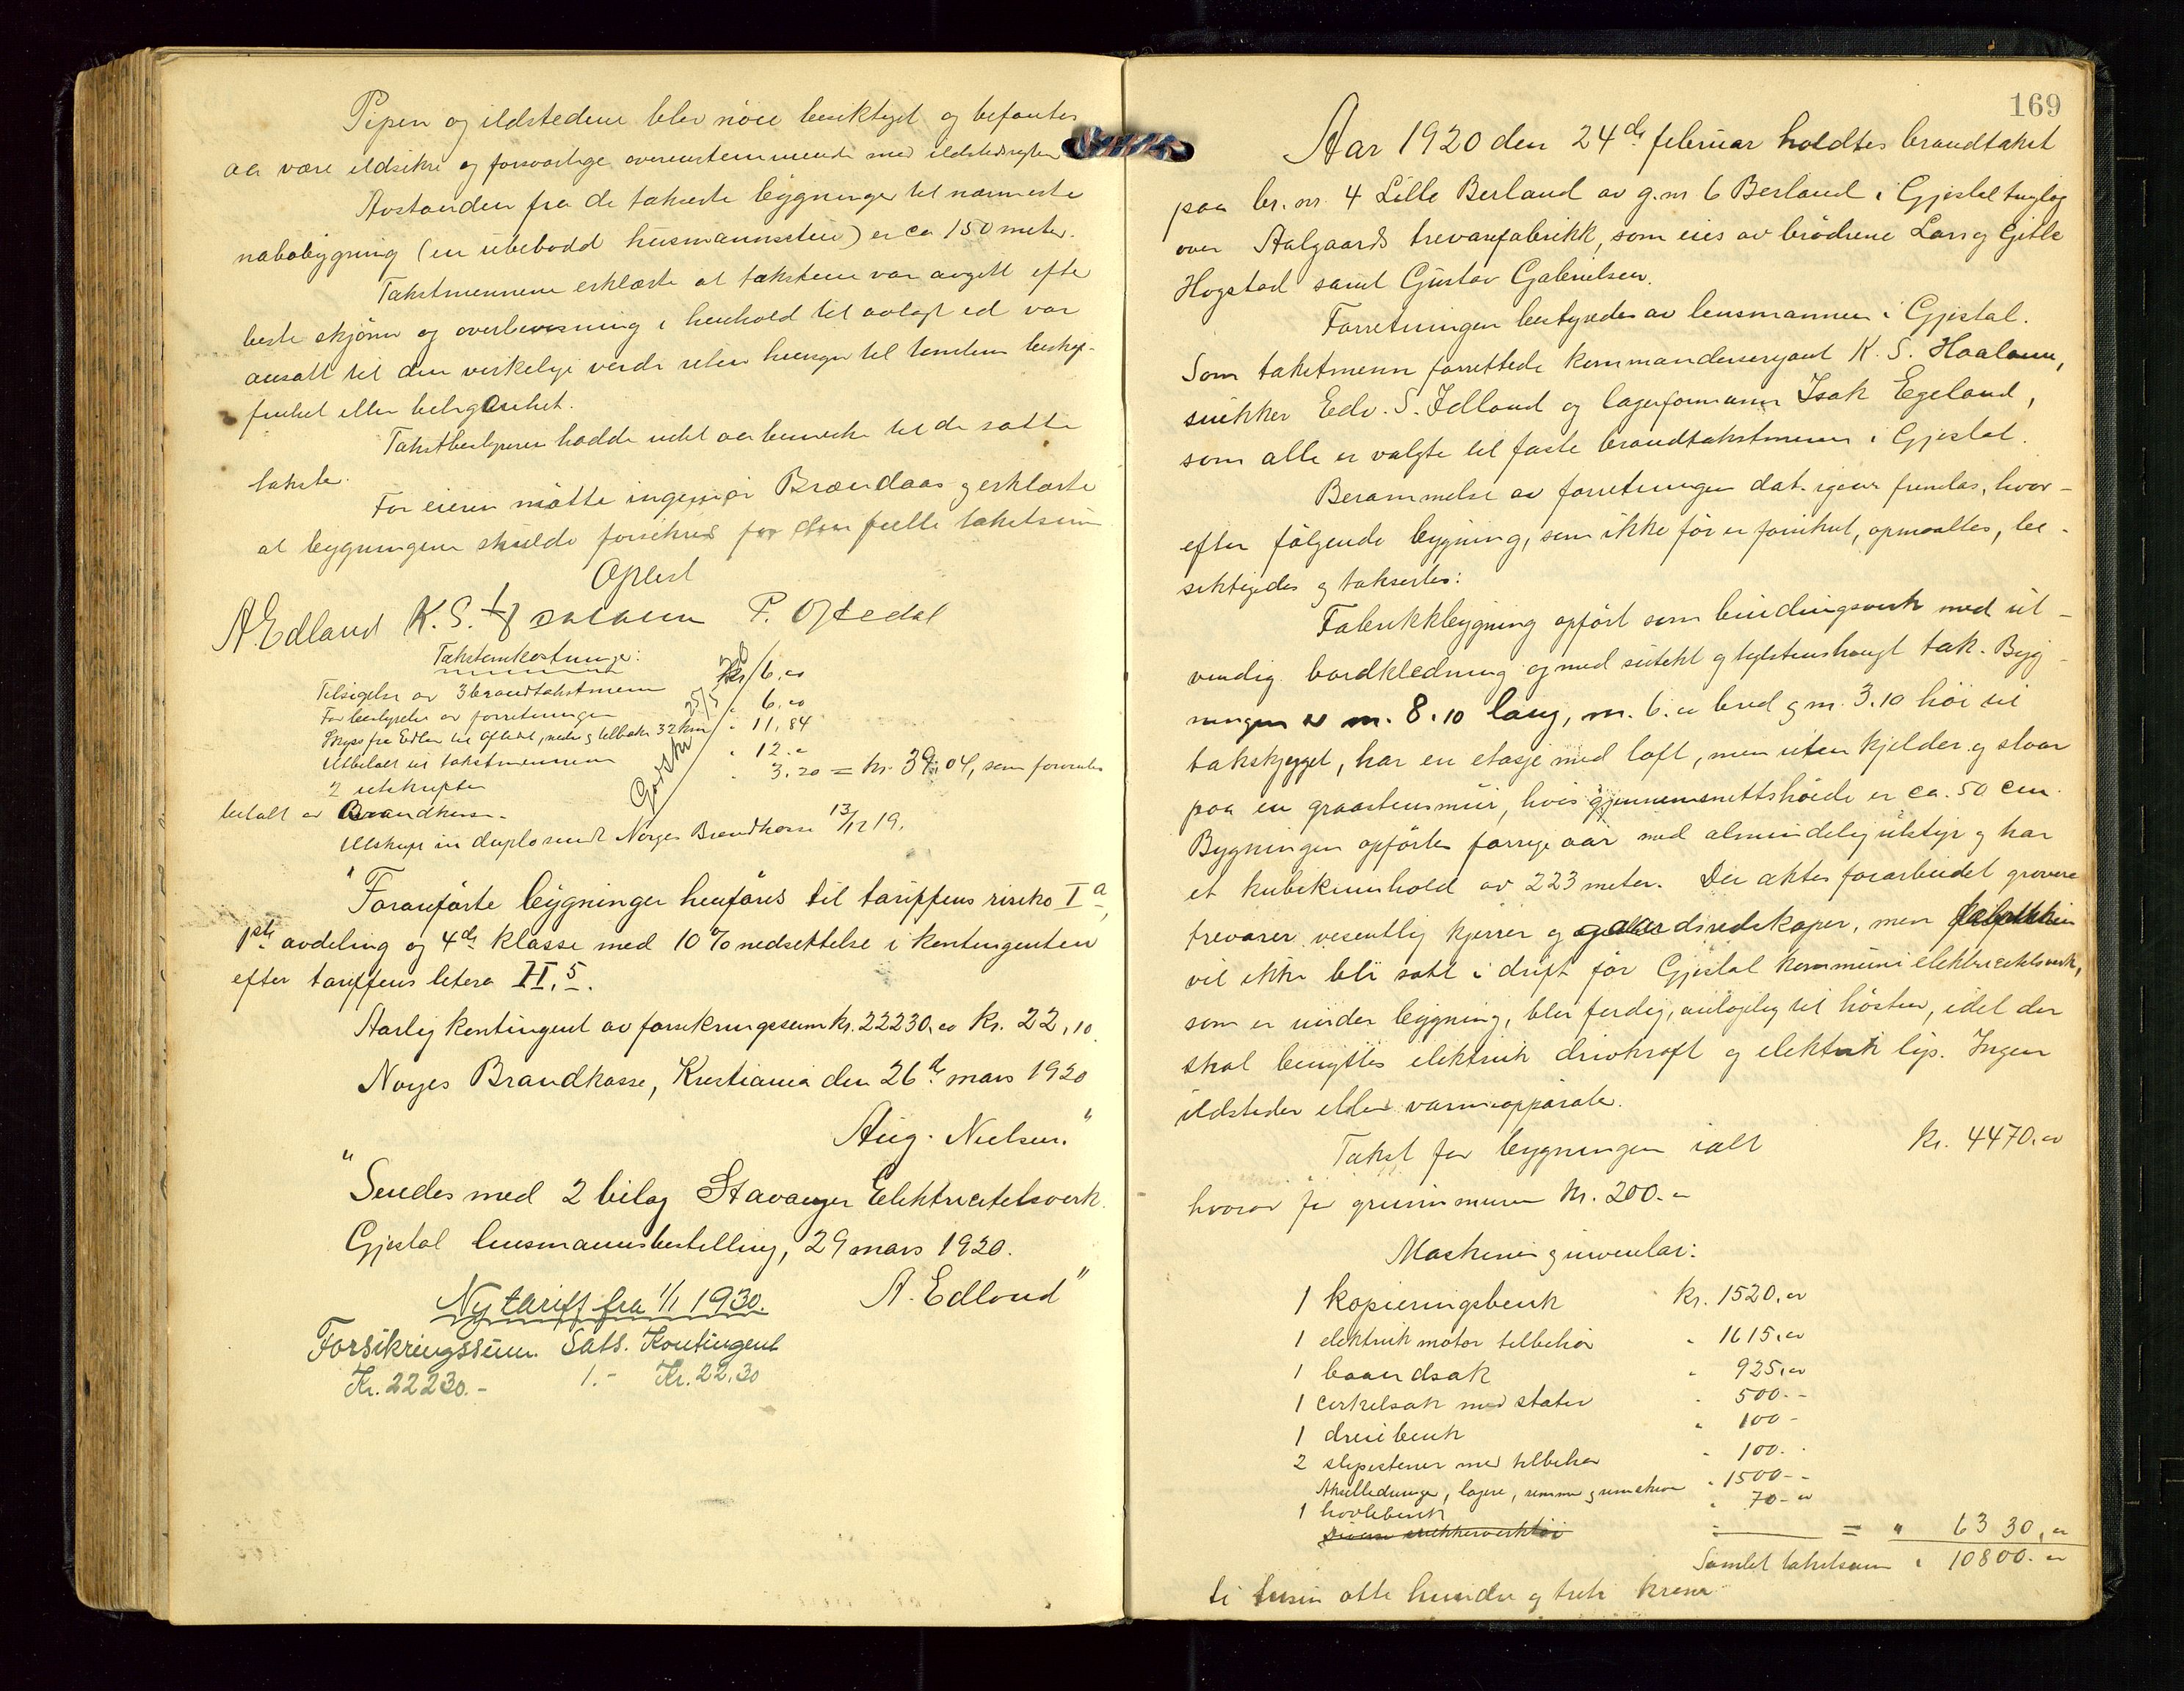 Pipen og ildstedene blev nöie besiktiget og befantes
aa være ildsikre og forsvarlige overensstemmende med ildstedsreglene
Avstanden fra de takserte bygninger til nærmeste
nabobygning (en ubebodd husmannsstue) er ca 150 meter.
Takstmennene erklærte at takstene var avgitt efter
beste skjönn og overbevisning i henhold til avlagt ed var
ansatt til den virkelige verdi uten hensyn til tomtens beskaf-
fenhet eller beliggenhet.
Takstbestyreren hadde intet aa bemerke til de satte
takster.
For eieren mötte ingeniör Brændaas og erklærte
at bygningene skulde forsikres for den fulle takstsum
Oplest
A. Edland K. S. Haaland P. Oftedal
Takstomkostninger:
Tilsigelse av 3 brandtakstmenn kr. 6,00
For bestyrelse av forretningen " 6,00
Skyss fra Edland til Oftedal, nedre og tilbake 32 km " 11,84
Utbetalt til takstmennene " 12.00
2 utskrifter " 3.20 = kr. 39,04, som foreslaaes
betalt av Brandkassen.
Utskrift in duplo sendt Norges Brandkasse 13/12 19.
"Foranförte bygninger henföres til tariffens risiko Ia,
1ste avdeling og 4de klasse med 10% nedsettelse i kontingenten
efter tariffens litera H. 5.
Aarlig kontingent av forsikringssum kr. 22230,00 Kr. 22,10.
Norges Brandkasse, Kristiania den 26de mars 1920
Aug. Nielsen."
"Sendes med 2 bilag Stavanger Elektricitetsverk.
Gjestal lensmannsbestilling, 29 mars 1920.
A. Edland"
Ny tariff fra 1/1 1930.
Forsikringssum. Sats. Kontingent
Kr. 22230.- 1.- Kr. 22,30
169
Aar 1920 den 24de februar holdtes brandtakst
paa br. nr. 4 Lille Berland av g. nr 6 Berland i Gjestal tinglag
over Aalgaards trevarefabrikk, som eies av brödrene Lars og Gitle
Hogstad samt Gustav Gabrielsen.
Forretningen bestyredes av lensmannen i Gjestal.
Som takstmenn forrettede kommandersergeant K. S. Haaland,
snikker Edv. S. Idland og lagerformann Isak Egeland,
som alle er valgte til faste brandtakstmenn i Gjestal.
Berammelse av forretningen dat. igaar fremlas, hvor-
efter fölgende bygning, som ikke för er forsikret, opmaaltes, be-
siktigedes og takseredes:
Fabrikkbygning opfört som bindingsverk med ut-
vendig bordkledning og med sutekt og teglstenshengt tak. Byg-
ningen er m. 8.10 lang, m. 6.00 bred og m. 3.10 höi til
takskjegget, har en etasje med loft, men uten kjelder og staar
paa en graastensmur, hvis gjennemsnittshöide er ca. 50 cm.
Bygningen opförtes forrige aar med almindelig utstyr og har
et kubikinnhold av 223 meter. Der aktes forarbeidet grovere
trevarer vesentlig kjerrer og gaardsredskaper, men fabrikken
vil ikke bli satt i drift för Gjestal kommunes elektricitetsverk,
som er under bygning, blir ferdig, antagelig til hösten, idet der
skal benyttes elektrisk drivkraft og elektrisk lys. Ingen
ildsteder eller varmeapparater.
Takst for bygningen ialt Kr. 4470.00
hvorav for grunnmuren kr. 200.00
Maskiner og inventar:
1 kopieringsbenk Kr. 1520,00
1 elektrisk motor tilbehör " 1615,00
1 baandsak " 925,00
1 cirkelsak med stativ " 500.-
1 dreiebenk " 100.-
2 slipestener med tilbehör " 100.-
Akselledninger, lagere, remmer og remskiver " 1500.-
1 hövlebenk " 70.00
Diverse snikkerverktöi = " 6330,00
Samlet takstsum " 10800.00
ti tusen otte hundre og kroner